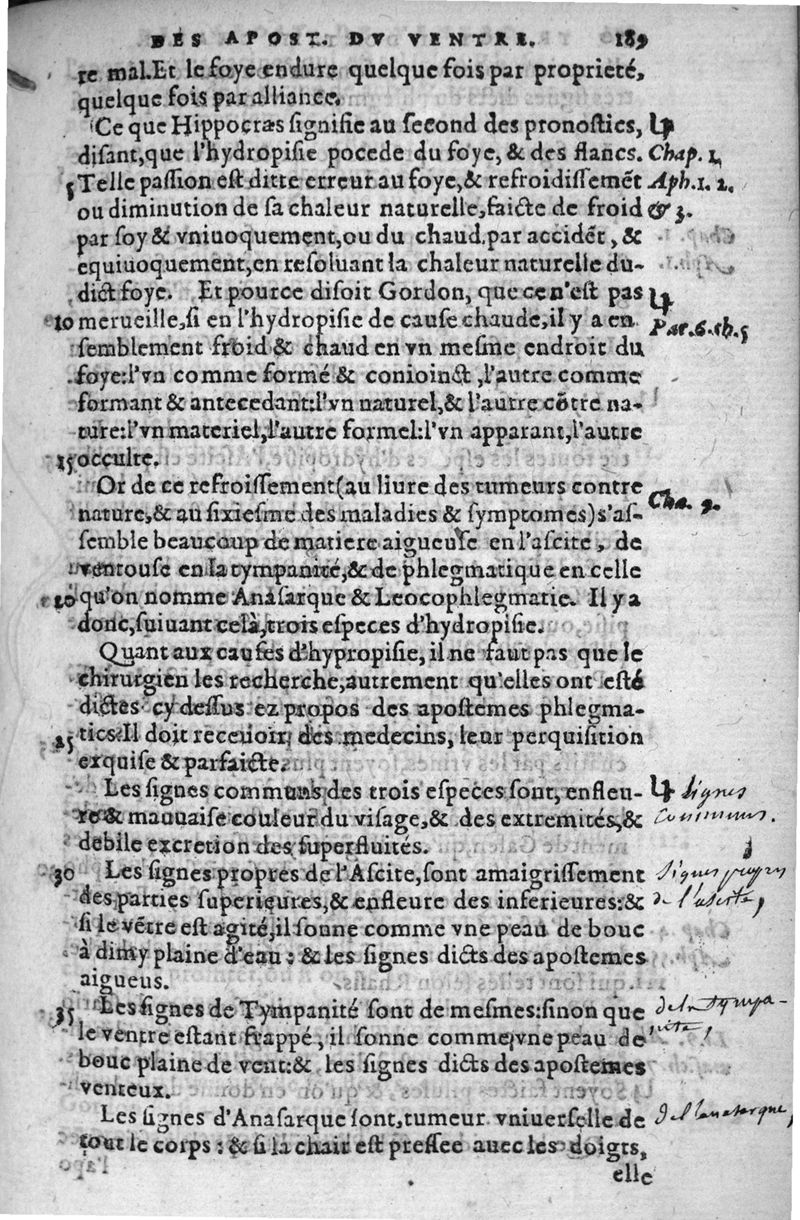 DES APOST. DV VENTRE. 189
re mal. Et le foye endure quelque fois par proprieté,
quelque fois par alliance.
Ce que Hippocras signifie au second des pronostics,
disant, que l'hydropisie pocede du foye, & des flancs. Chap. 1,
5 Telle passion est ditte erreur au foye, & refroidissemẽt Aph. 1. 2.
ou diminution de sa chaleur naturelle, faicte de froid & 3.
par soy & vniuoquement, ou du chaud par accidẽt, &
equiuoquement, en resoluant la chaleur naturelle du-
dict foye. Et pource disoit Gordon, que ce n'est pas
10 merueille, si en l'hydropisie de cause chaude, il y a en Par. 6. ch. 5
semblement froid & chaud en vn mesme endroit du
foye: l'vn comme formé & conioinct, l'autre comme
formant & antecedant: l'vn naturel, & l'autre cõtre na-
ture: l'vn materiel, l'autre formel: l'vn apparant, l'autre
15 occulte.
Or de ce refroissement (au liure des tumeurs contre
nature, & au sixiesme des maladies & symptomes) s'as- Cha. 9.
semble beaucoup de matiere aigueuse en l'ascite, de
ventouse en la tympanité, & de phlegmatique en celle
20 qu'on nomme Anasarque & Leocophlegmatie. Il y a
donc, suiuant celà, trois especes d'hydropisie.
Quant aux causes d'hypropisie, il ne faut pas que le
chirurgien les recherche, autrement qu'elles ont esté
dictes cy dessus ez propos des apostemes phlegma-
25 tics: Il doit receuoir des medecins, leur perquisition
exquise & parfaicte.
Les signes communs des trois especes sont, enfleu- Signes
re & mauuaise couleur du visage, & des extremités, & Communs.
debile excretion des superfluités.
30 Les signes propres de l'Ascite, sont amaigrissement Signes propres
des parties superieures, & enfleure des inferieures: & de l'ascite,
si le vẽtre est agité, il sonne comme vne peau de bouc
à dimy plaine d'eau: & les signes dicts des apostemes
aigueus.
35 Les signes de Tympanité sont de mesmes: sinon que de la tympa-
le ventre estant frappé, il sonne comme vne peau de nité,
bouc plaine de vent: & les signes dicts des apostemes
venteux.
Les signes d'Anasarque sont, tumeur vniuerselle de de l'anasarque,
tout le corps: & si la chair est pressee auec les doigts,
elle